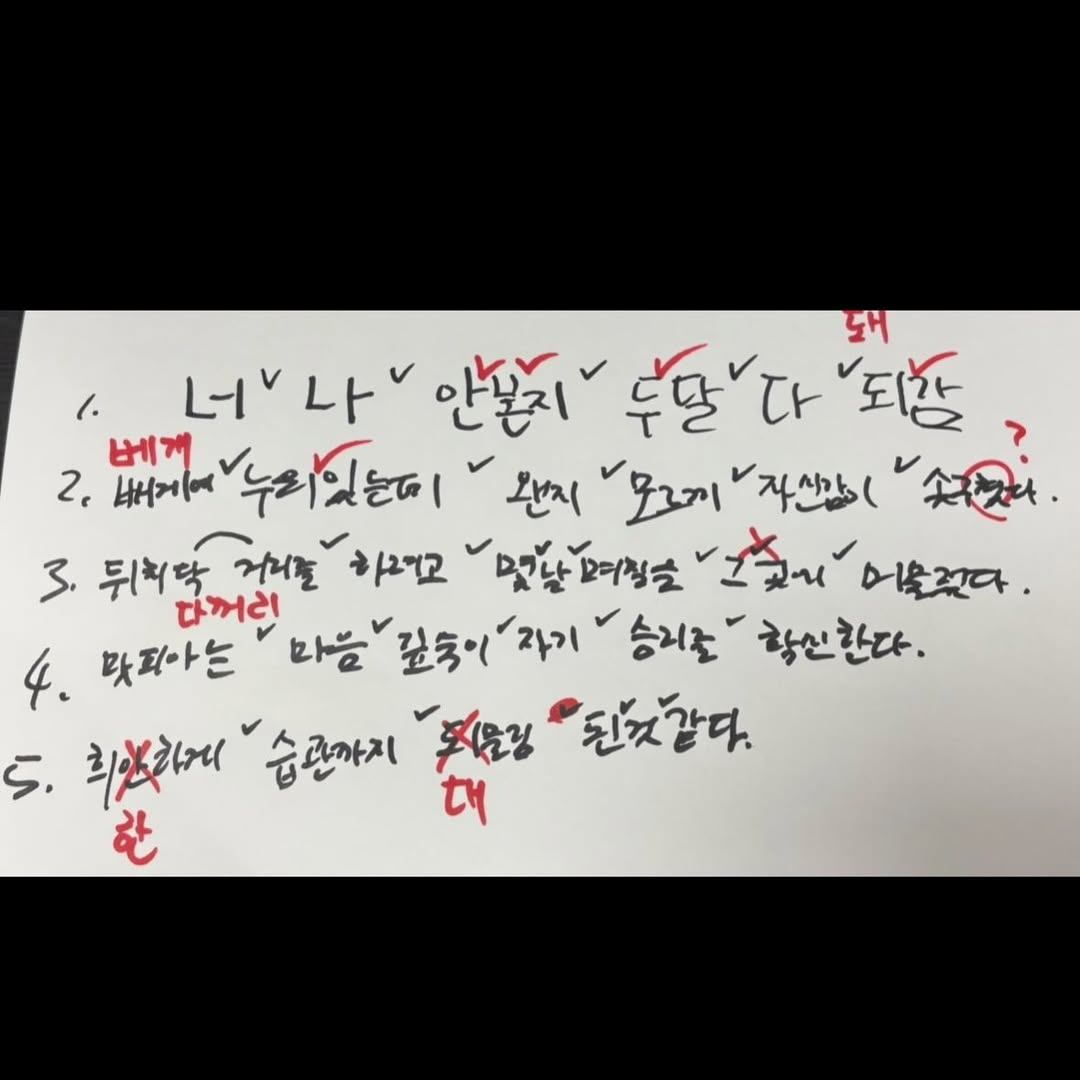 돼
1. 너 나 안본지 두달 다 되감
베게
2. 베게에 누워있는데 왠지 모르게 자신감이 솟구쳤다.
?
3. 뒤치닥 거리를 하려고 몇날 며칠을 그 곳에 머물렀다.
다꺼리
4. 맛피아는 마음 깊숙이 자기 승리를 확신한다.
5. 희안하게 습관까지 되물림 된것 같다.
한 대